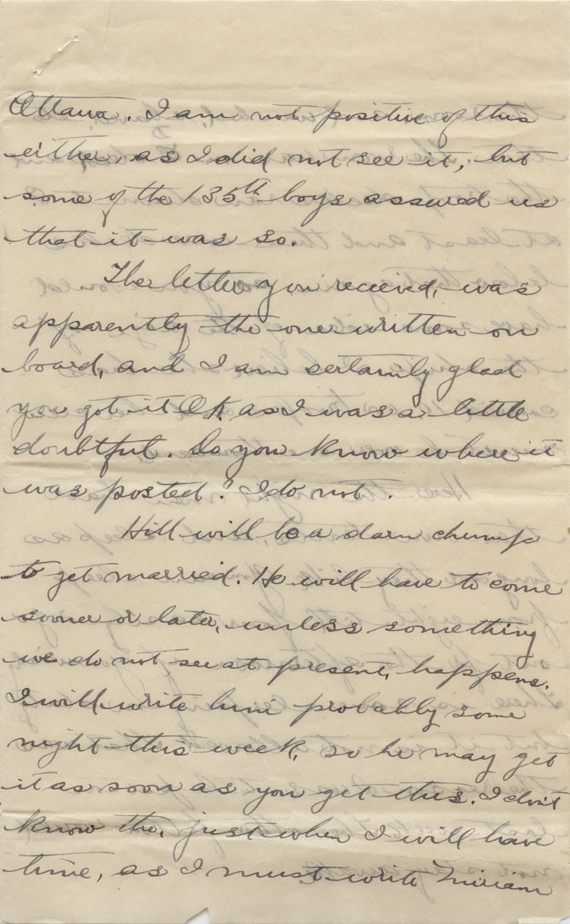 Ottawa. I am not positive of this
either as I did not see it, but
some of the 135th boys assured us
that it was so.
The letter you recieved, was
apparently the one written on
board, and I am certainly glad
you got it OK as I was a little
doubtful. Do you know where it
was posted? I do not.
Hill will be a darn chump
to get married. He will have to come
sooner or later, unless something
we do not see at present, happens.
I will write him probably some
night this week, so he may get
it as soon as you get this. I don't
know tho, just when I will have
time, as I must write Miriam